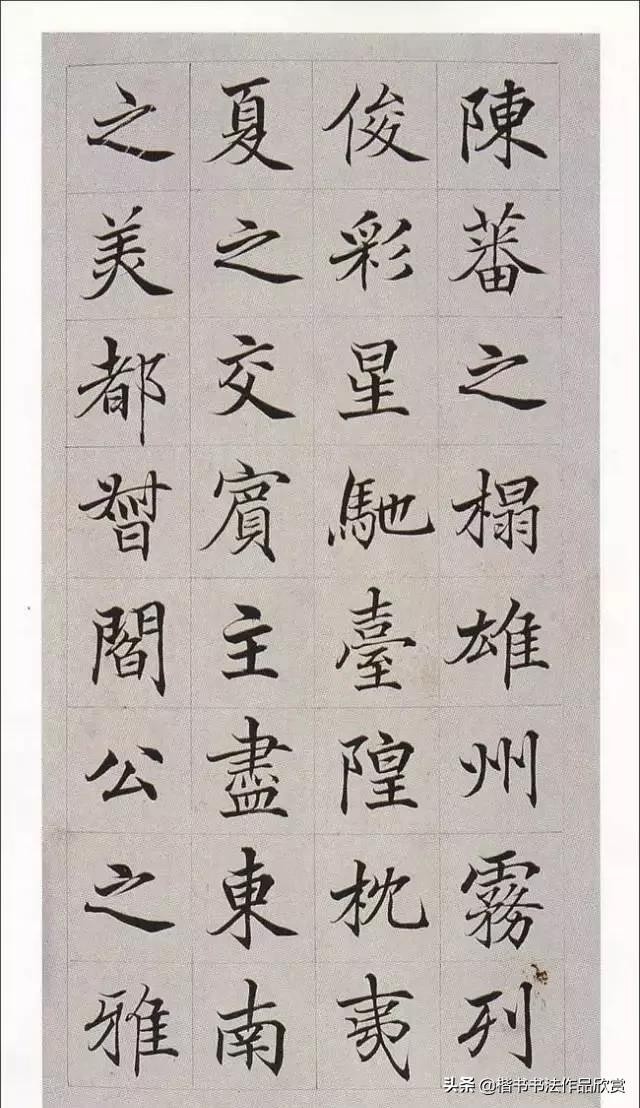 陳蕃之榻雄州霧列
俊彩星馳臺隍枕夷
夏之交賓主盡東南
之美都督閻公之雅
头条 @楷书书法作品欣赏